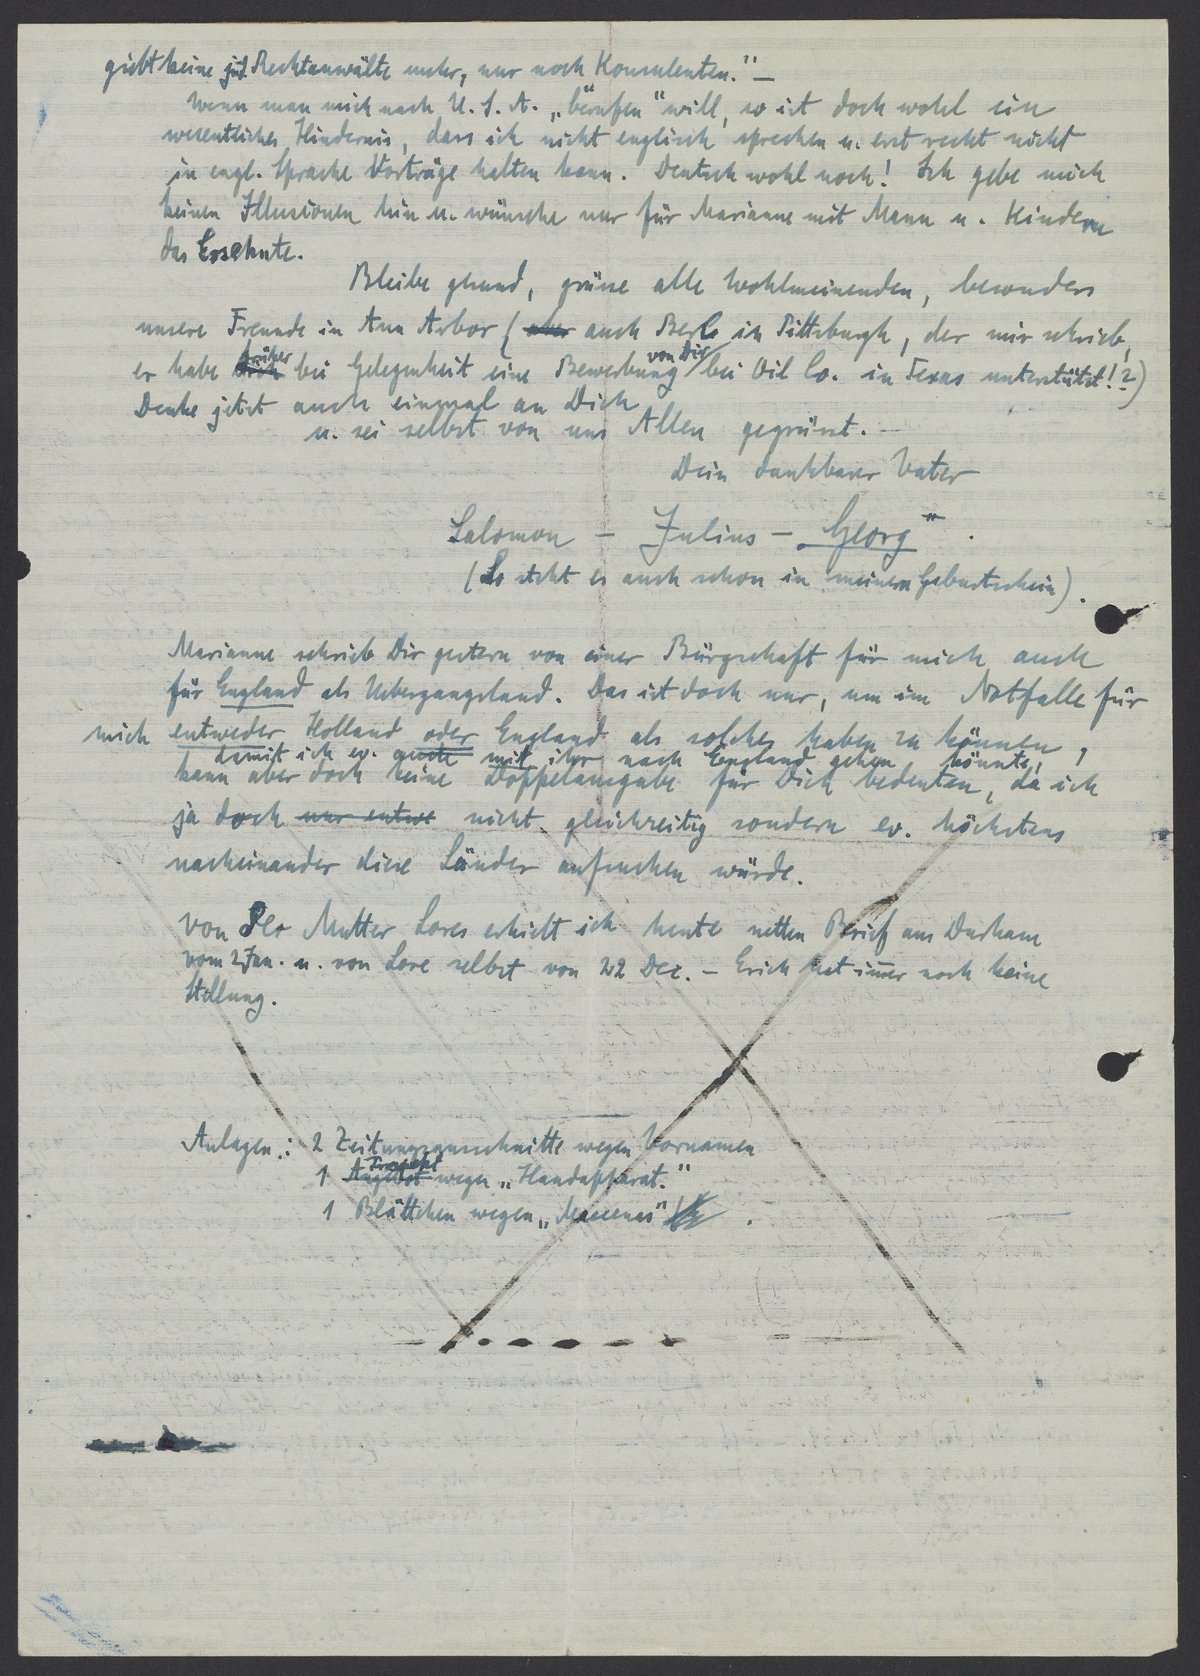 giebt keine jüd. Rechtanwälte mehr, nur noch Konsulenten." –
Wenn man mich nach U.S.A. „berufen" will, so ist doch wohl ein
wesentliches Hindernis, dass ich nicht englisch sprechen u. erst recht nicht
in engl. Sprache Vorträge halten kann. Deutsch wohl noch! Ich gebe mich
keinen Illusionen hin u. wünsche nur für Marianne mit Mann u. Kindern
das Ersehnte.
Bleibe gesund, grüsse alle Wohlmeinenden, besonders
unsere Freunde in Ann Arbor (aber auch Berl in Pittsburgh, der mir schrieb,
er habe früher bei Gelegenheit eine Bewerbung von Dir bei Oil Co. in Texas unterstützt!?)
Denke jetzt auch einmal an Dich
u. sei selbst von uns Allen gegrüsst. –
Dein dankbarer Vater
Salomon – Julius – „Georg".
(So steht es auch schon in meinem Geburtsschein).
Marianne schrieb Dir gestern von einer Bürgschaft für mich auch
für England als Uebergangsland. Das ist doch nur, um im Notfalle für
mich entweder Holland oder England als solches haben zu können,
damit ich ev. auch mit ihr nach England gehen könnte,
kann aber doch keine Doppelausgabe für Dich bedeuten, da ich
ja doch nur entwe nicht gleichzeitig sondern ev. höchstens
nacheinander diese Länder aufsuchen würde.
Von der Mutter Lores erhielt ich heute netten Brief aus Durham
vom 2 Jan. u. von Lore selbst von 22 Dec. – Erich hat immer noch keine
Stellung.
Anlagen: 2 Zeitungsausschnitte wegen Vornamen
1 Prospekt Angebot wegen „Handapparat."
1 Blättchen wegen „Maecenas".